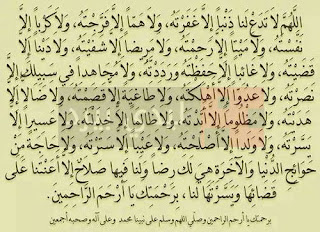 اللَّهُمَّ لَا تَدَعْ لَنَا ذَنْبًا إِلَّا غَفَرْتَهُ، وَلَا هَمًّا إِلَّا فَرَّجْتَهُ، وَلَا كَرْبًا إِلَّا
نَفَّسْتَهُ، وَلَا مَيْتًا إِلَّا رَحِمْتَهُ، وَلَا مَرِيضًا إِلَّا شَفَيْتَهُ، وَلَا دَيْنًا إِلَّا
قَضَيْتَهُ، وَلَا غَائِبًا إِلَّا حَفِظْتَهُ وَرَدَدْتَهُ، وَلَا مُجَاهِدًا فِي سَبِيلِكَ إِلَّا
نَصَرْتَهُ، وَلَا عَدُوًّا إِلَّا أَهْلَكْتَهُ، وَلَا طَاغِيَةً إِلَّا قَصَمْتَهُ، وَلَا ضَالًّا إِلَّا
هَدَيْتَهُ، وَلَا مَظْلُومًا إِلَّا أَيَّدْتَهُ، وَلَا ظَالِمًا إِلَّا خَذَلْتَهُ، وَلَا عَسِيرًا إِلَّا
يَسَّرْتَهُ، وَلَا وَلَدًا إِلَّا أَصْلَحْتَهُ، وَلَا عَيْبًا إِلَّا سَتَرْتَهُ، وَلَا حَاجَةً مِنْ
حَوَائِجِ الدُّنْيَا وَالْآخِرَةِ هِيَ لَكَ رِضًا وَلَنَا فِيهَا صَلَاحٌ إِلَّا أَعَنْتَنَا عَلَى
قَضَائِهَا وَيَسَّرْتَهَا لَنَا، بِرَحْمَتِكَ يَا أَرْحَمَ الرَّاحِمِينَ.
برحمتك يا أرحم الراحمين وصلي اللهم وسلم على نبينا محمد وعلى آله وصحبه أجمعين